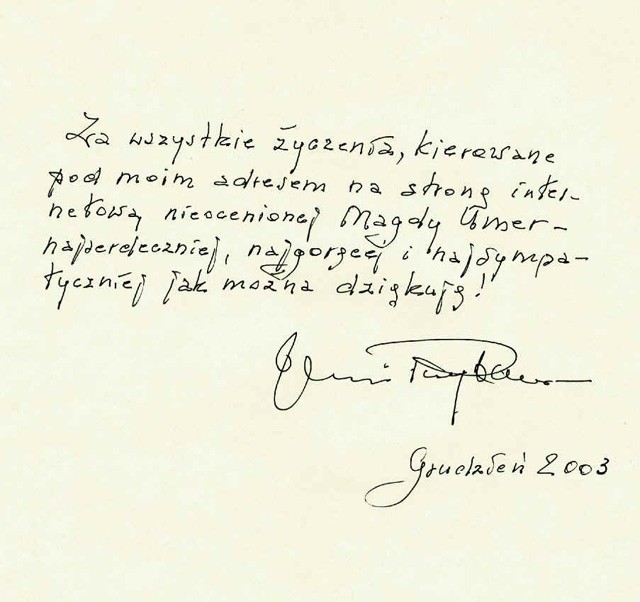 Za wszystkie życzenia, kierowane
pod moim adresem na stronę inter-
netową nieocenionej Magdy Umer -
najserdeczniej, najgoręcej i najsympa-
tyczniej jak można dziękuję!
Grudzień 2003